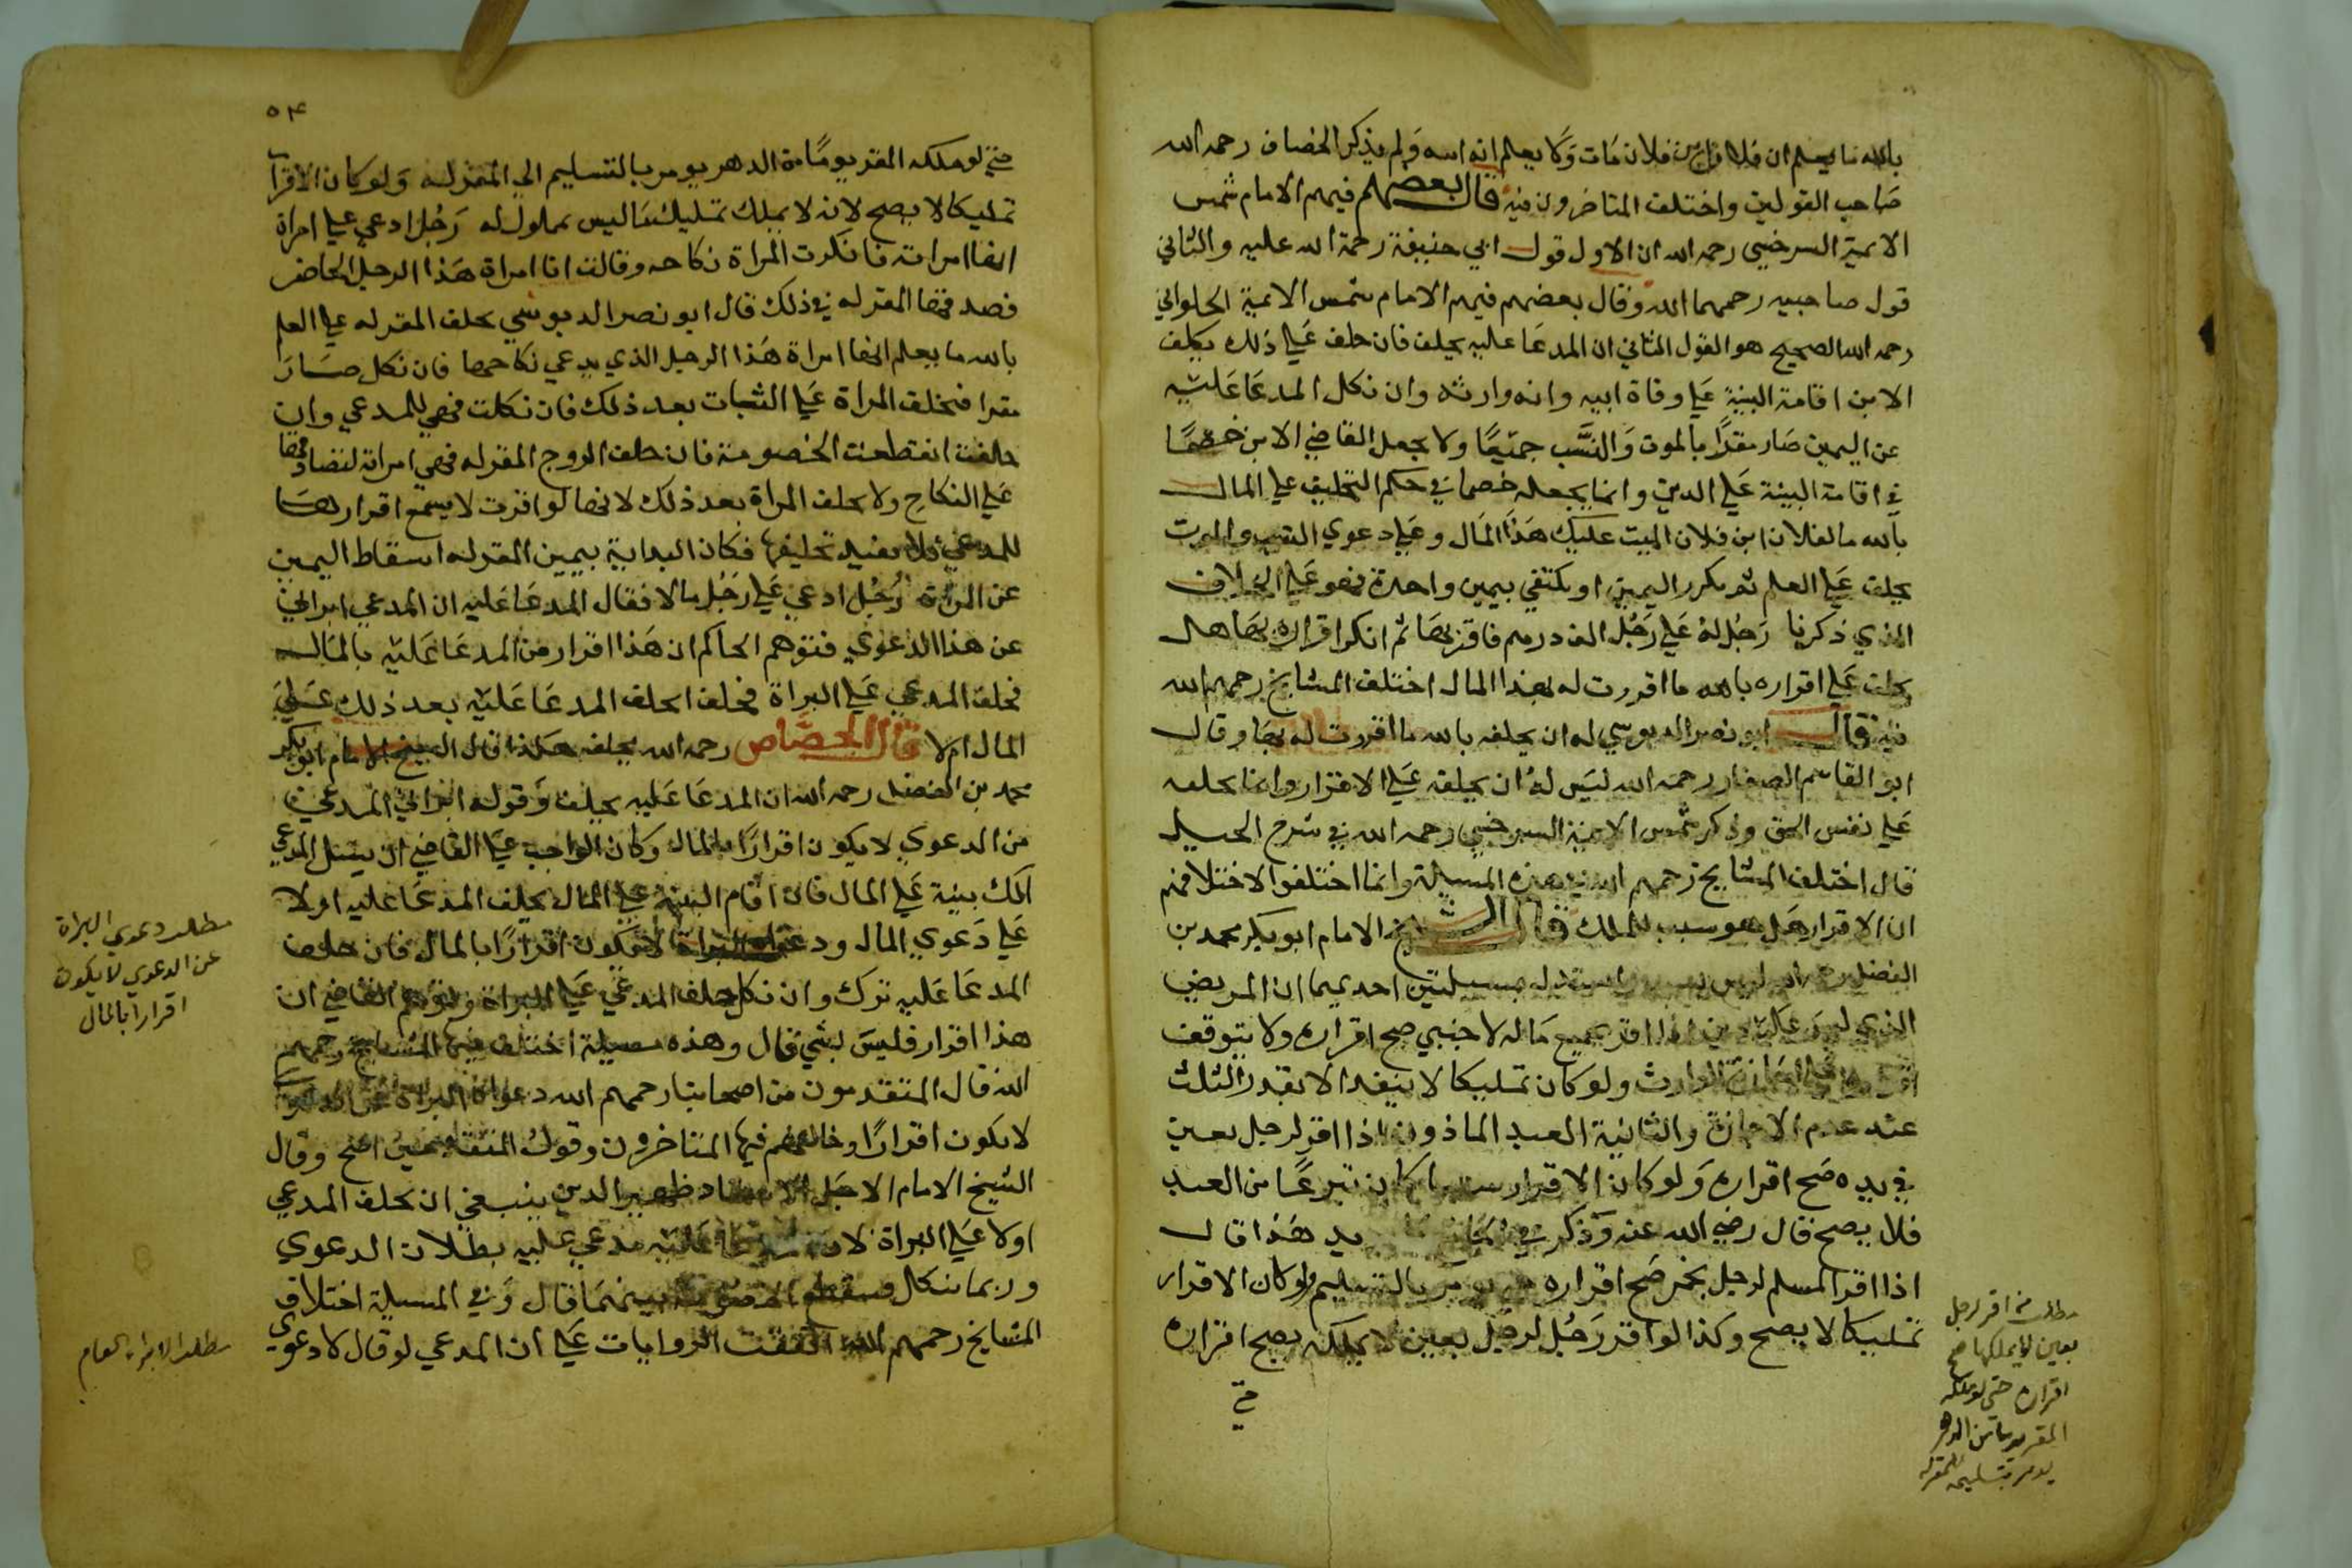 بالله ما يعلم ان فلانا بن فلان مات ولا يعلم انه ابنه ولم يذكر الخصاف رحمه الله
صاحب القولين واختلف المتاخرون فيه قال بعضهم فيهم الامام شمس
الايمة السرخسي رحمه الله ان الاول قول ابي حنيفة رحمة الله عليه والثاني
قول صاحبيه رحمهما الله وقال بعضهم فيهم الامام شمس الايمة الحلواني
رحمه الله الصحيح هو القول الثاني ان المدعا عليه يحلف فان حلف علي ذلك يكلف
الابن اقامة البينة علي وفاة ابيه وانه وارثه وان نكل المدعا عليه
عن اليمين صار مقرا بالموت والنسب جميعا ولا يجعل القاضي الابن خصما
في اقامة البينة علي الدين وانما يجعله خصما في حكم التحليف علي المال
بالله ما لفلان ابن فلان الميت عليك هذا المال وعلي دعوي النسب والموت
يحلف علي العلم ثم يكرر اليمين او يكتفي بيمين واحدة فهو علي الخلاف
الذي ذكرنا رجل له علي رجل الف درهم فاقر بها ثم انكر اقراره بها هل
يحلف علي اقراره بالله ما اقررت له بهذا المال اختلف المشايخ رحمهم الله
فيه قال ابو نصر الدبوسي له ان يحلفه بالله ما اقررت له بها وقال
ابو القاسم الصفار رحمه الله ليس له ان يحلفه علي الاقرار وانما يحلفه
علي نفس الحق وذكر شمس الايمة السرخسي رحمه الله في شرح الحيل
قال اختلف المشايخ رحمهم الله في هذه المسيلة وانما اختلفوا لاختلافهم
ان الاقرار هل هو سبب للملك قال الشيخ الامام ابو بكر محمد بن
الفضل رحمه الله ليس بسبب واستدل بمسيلتين احديهما ان المريض
الذي ليس عليه دين اذا اقر بجميع ماله لاجنبي صح اقراره ولا يتوقف
علي اجازة الوارث ولو كان تمليكا لا ينفد الا بقدر الثلث
عند عدم الاجازة والثانية العبد الماذون اذا اقر لرجل بعين
في يده صح اقراره ولو كان الاقرار سببا كان تبرعا من العبد
فلا يصح قال رضي الله عنه وذكر في هذا قال
اذا اقر المسلم لرجل بخمر صح اقراره بالتسليم ولو كان الاقرار
تمليكا لا يصح وكذا لو اقر رجل لرجل بعين لا يملكه يصح اقراره
حتي
مطلب من اقر لرجل
بعين لا يملكها صح
اقراره حتي لو ملكه
المقر يوما من الدهر
يومر بتسليمه للمقر له
٥٤
حتي لو ملكه المقر يوما من الدهر يومر بالتسليم الي المقر له ولو كان الاقرار
تمليكا لا يصح لانه لا يملك تمليك ما ليس بمملوك له رجل ادعي علي امراة
انها امراته فانكرت المراة نكاحه وقالت انا امراة هذا الرجل الحاضر
فصدقها المقر له في ذلك قال ابو نصر الدبوسي يحلف المقر له علي العلم
بالله ما يعلم انها امراة هذا الرجل الذي يدعي نكاحها فان نكل صار
مقرا فتحلف المراة علي الثبات بعد ذلك فان نكلت فهي للمدعي وان
حلفت انقطعت الخصومة فان حلف الزوج المقر له فهي امراته لتصادقهما
علي النكاح ولا يحلف المراة بعد ذلك لانها لو اقرت لا يسمع اقرارها
للمدعي فلا يفيد تحليفها فكان البداية بيمين المقر له اسقاط اليمين
عن المراة رجل ادعي علي رجل مالا فقال المدعا عليه ان المدعي ابراني
عن هذا الدعوي فتوهم الحاكم ان هذا اقرار من المدعا عليه بالمال
فحلف المدعي علي البراة فحلف ايحلف المدعا عليه بعد ذلك علي
المال ام لا قال الخصاف رحمه الله يحلف هكذا قال الشيخ الامام ابو بكر
محمد بن الفضل رحمه الله ان المدعا عليه يحلف وقوله ابراني المدعي
من الدعوي لا يكون اقرارا بالمال وكان الواجب علي القاضي ان يسل المدعي
الك بينة علي المال فان اقام البينة علي المال يحلف المدعا عليه اولا
علي دعوي المال ودعوي البراة لا تكون اقرارا بالمال فان حلف
المدعا عليه ترك وان نكل حلف المدعي علي البراة وتوهم القاضي ان
هذا اقرار فليس بشي قال وهذه مسيلة اختلف فيها المشايخ رحمهم
الله قال المتقدمون من اصحابنا رحمهم الله دعواه البراة عن الدعوي
لا يكون اقرارا وخالفهم فيها المتاخرون وقول المتقدمين اصح وقال
الشيخ الامام الاجل الاستاد ظهير الدين ينبغي ان يحلف المدعي
اولا علي البراة لان المدعا عليه يدعي عليه بطلان الدعوي
وربما ينكل فتنقطع الخصومة بينهما قال وفي المسيلة اختلاف
المشايخ رحمهم الله اتفقت الروايات علي ان المدعي لو قال لا دعوي
مطلب دعوي البراة
عن الدعوي لا يكون
اقرارا بالمال
مطلب الابراء العام